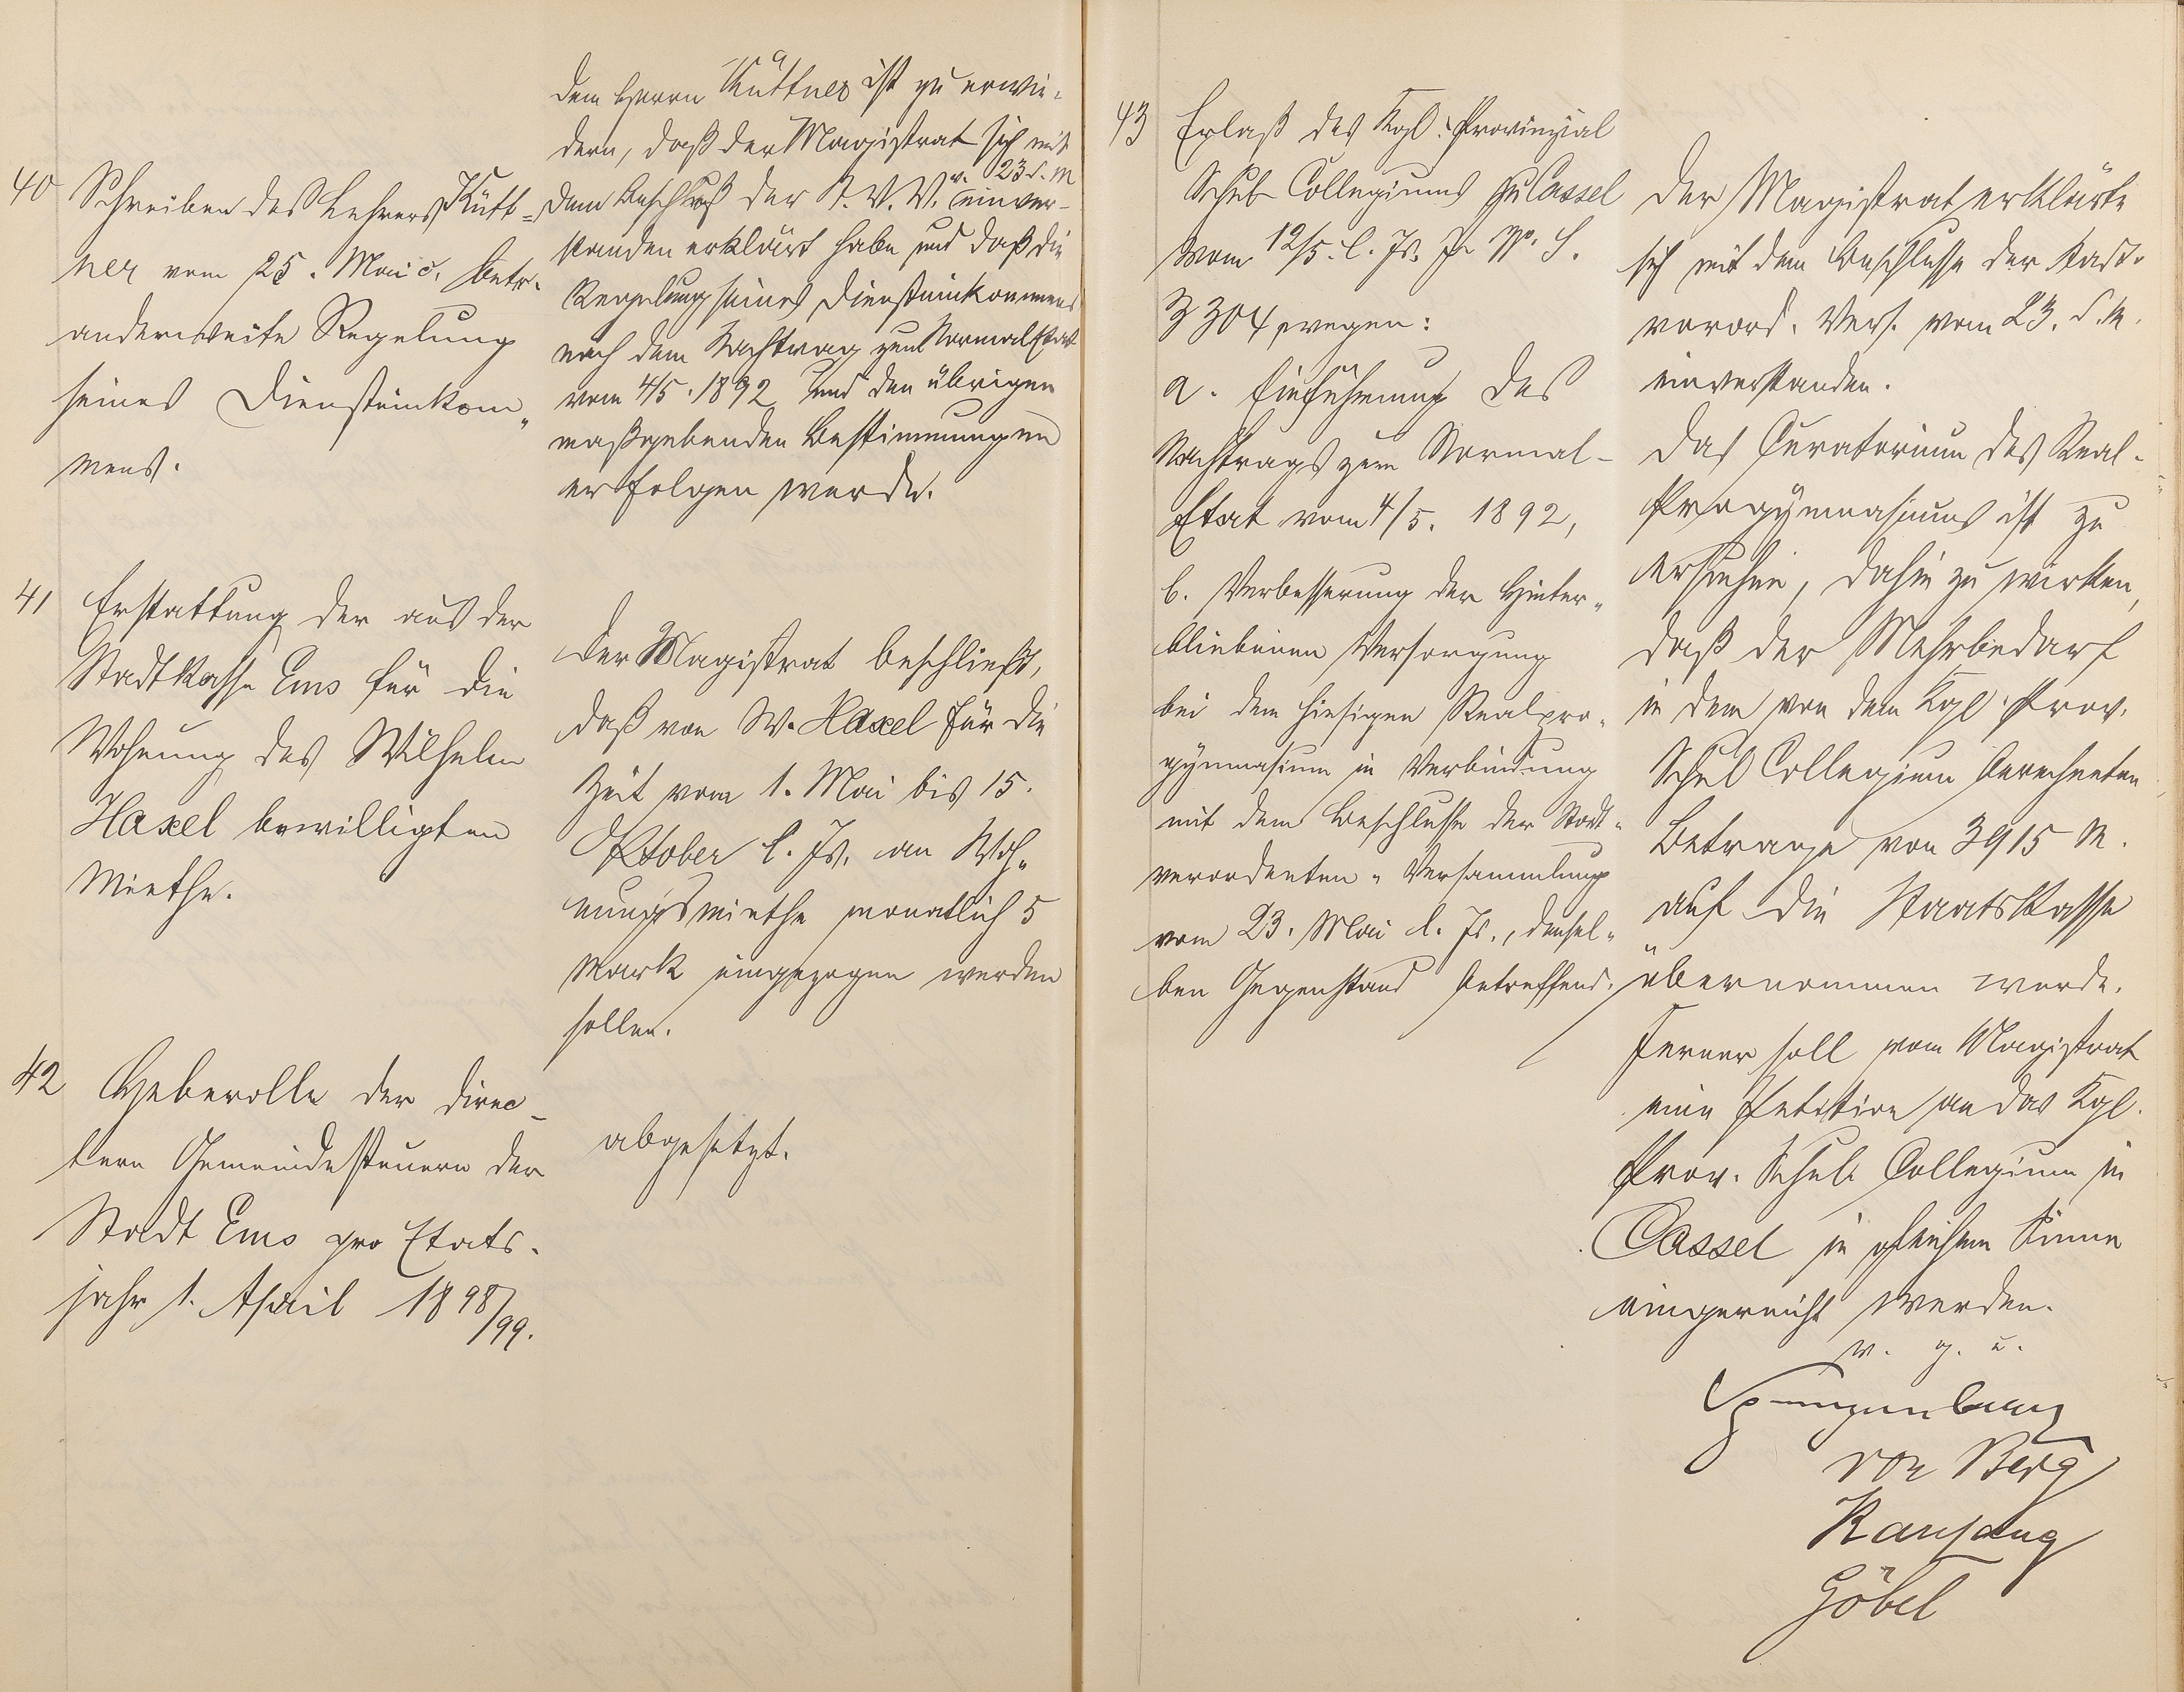 40
Schreiben des Lehrers Kütt-
ner vom 25. Mai c. betr.
anderweite Regelung
seines Diensteinkom-
mens.
dem Herrn Küttner ist zu erwie-
dern, daß der Magistrat sich mit
dem Beschluß der St. V. V. v. 23 d. M einver-
standen erklärt habe und daß die
Regelung seines Diensteinkommens
nach dem Nachtrag zum Normaletat
vom 4/5. 1892 und den übrigen
maßgebenden Bestimmungen
erfolgen werde.
41
Erstattung der aus der
Stadtkasse Ems für die
Wohnung des Wilhelm
Haxel bewilligten
Miethe.
Der Magistrat beschließt,
daß von W. Haxel für die
Zeit vom 1. Mai bis 15.
Oktober l. Js. an Woh-
nungsmiethe monatlich 5
Mark eingezogen werden
sollen.
42
Heberolle der direc-
ten Gemeindesteuern der
Stadt Ems pro Etats-
jahr 1. April 1898/99.
abgesetzt.
43
Erlaß des Kgl. Provinzial
Schul-Collegiums zu Cassel
vom 12/5. l. Js. No. S.
3304 wegen:
a. Einführung des
Nachtrags zum Normal-
Etat vom 4/5. 1892,
b. Verbesserung der Hinter-
bliebenen Versorgung
bei dem hiesigen Realpro-
gymnasium in Verbindung
mit dem Beschlusse der Stadt-
verordneten-Versammlung
vom 23. Mai l. Js., densel-
ben Gegenstand betreffend.
Der Magistrat erklärte
sich mit dem Beschlusse der Stadt-
verord. Vers. vom 23. d. M.
einverstanden.
Das Curatorium des Real-
Progymnasiums ist zu
ersuchen, dahin zu wirken,
daß der Mehrbedarf
in dem von dem Kgl. Prov.
Schul Collegium berechneten
Betrage von 3915 M.
auf die Staatskasse
übernommen werde.
Ferner soll vom Magistrat
eine Petition an das Kgl.
Prov. Schul-Collegium in
Cassel in gleichem Sinne
eingereicht werden.
v. g. u.
Spangenberg
von Berg
Göbel